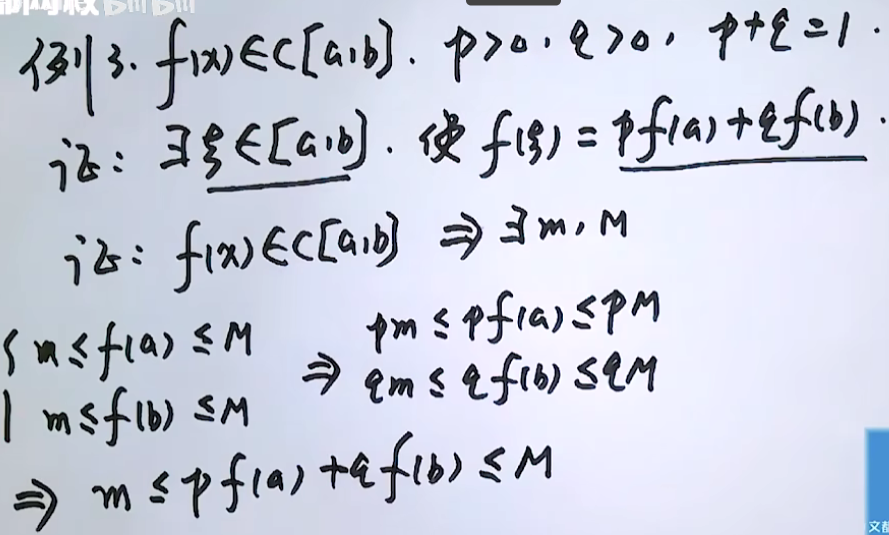 例3. f(x)∈C[a,b]. p>0, q>0, p+q=1.
证: ∃ξ∈[a,b]. 使 f(ξ)=pf(a)+qf(b).
证: f(x)∈C[a,b] ⇒ ∃m,M
{ m≤f(a)≤M ⇒ pm≤pf(a)≤pM
m≤f(b)≤M qm≤qf(b)≤qM
⇒ m≤pf(a)+qf(b)≤M
文都